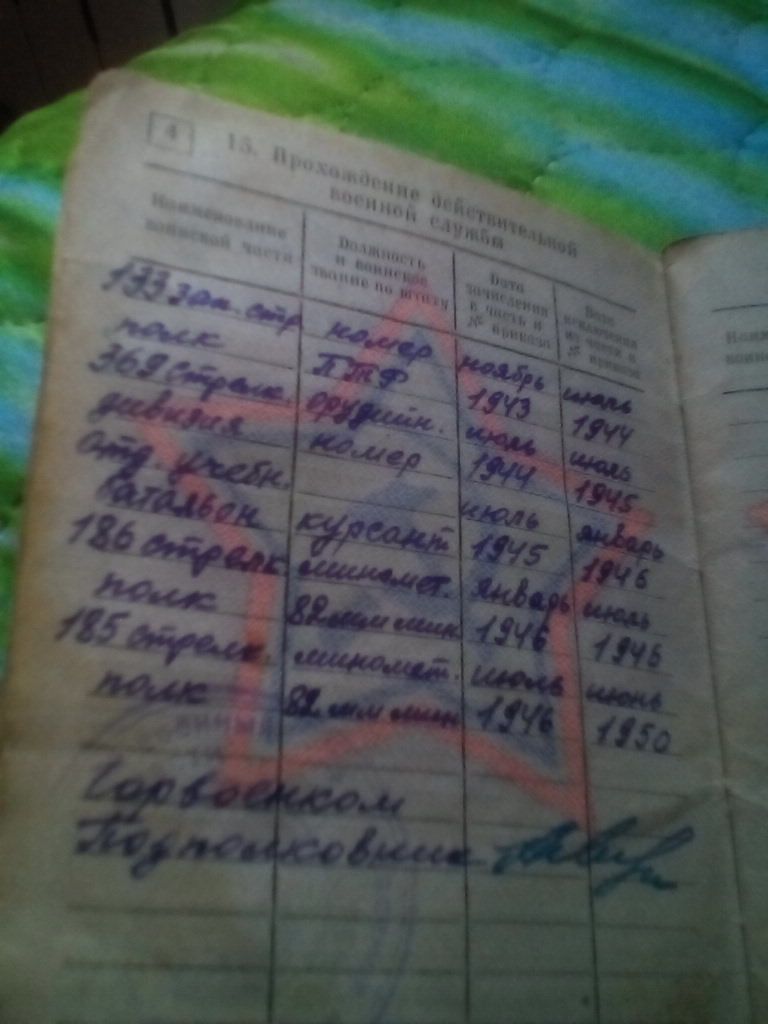 4
13. Прохождение действительной
военной службы
Наименование воинской части
Должность и воинское звание по штату
Дата зачисления в часть и № приказа
Дата исключения из части и № приказа
133 зап. стр. номер ноябрь июль
полк ПТФ 1943 1944
369 стрелк. орудийн. июль июль
дивизия номер 1944 1945
отд. учебн.
батальон курсант июль январь
1945 1946
186 стрелк. миномет. январь июль
полк 82 мм мин 1946 1946
185 стрелк. миномет. июль июнь
полк 82 мм мин 1946 1950
Горвоенком
Подполковник